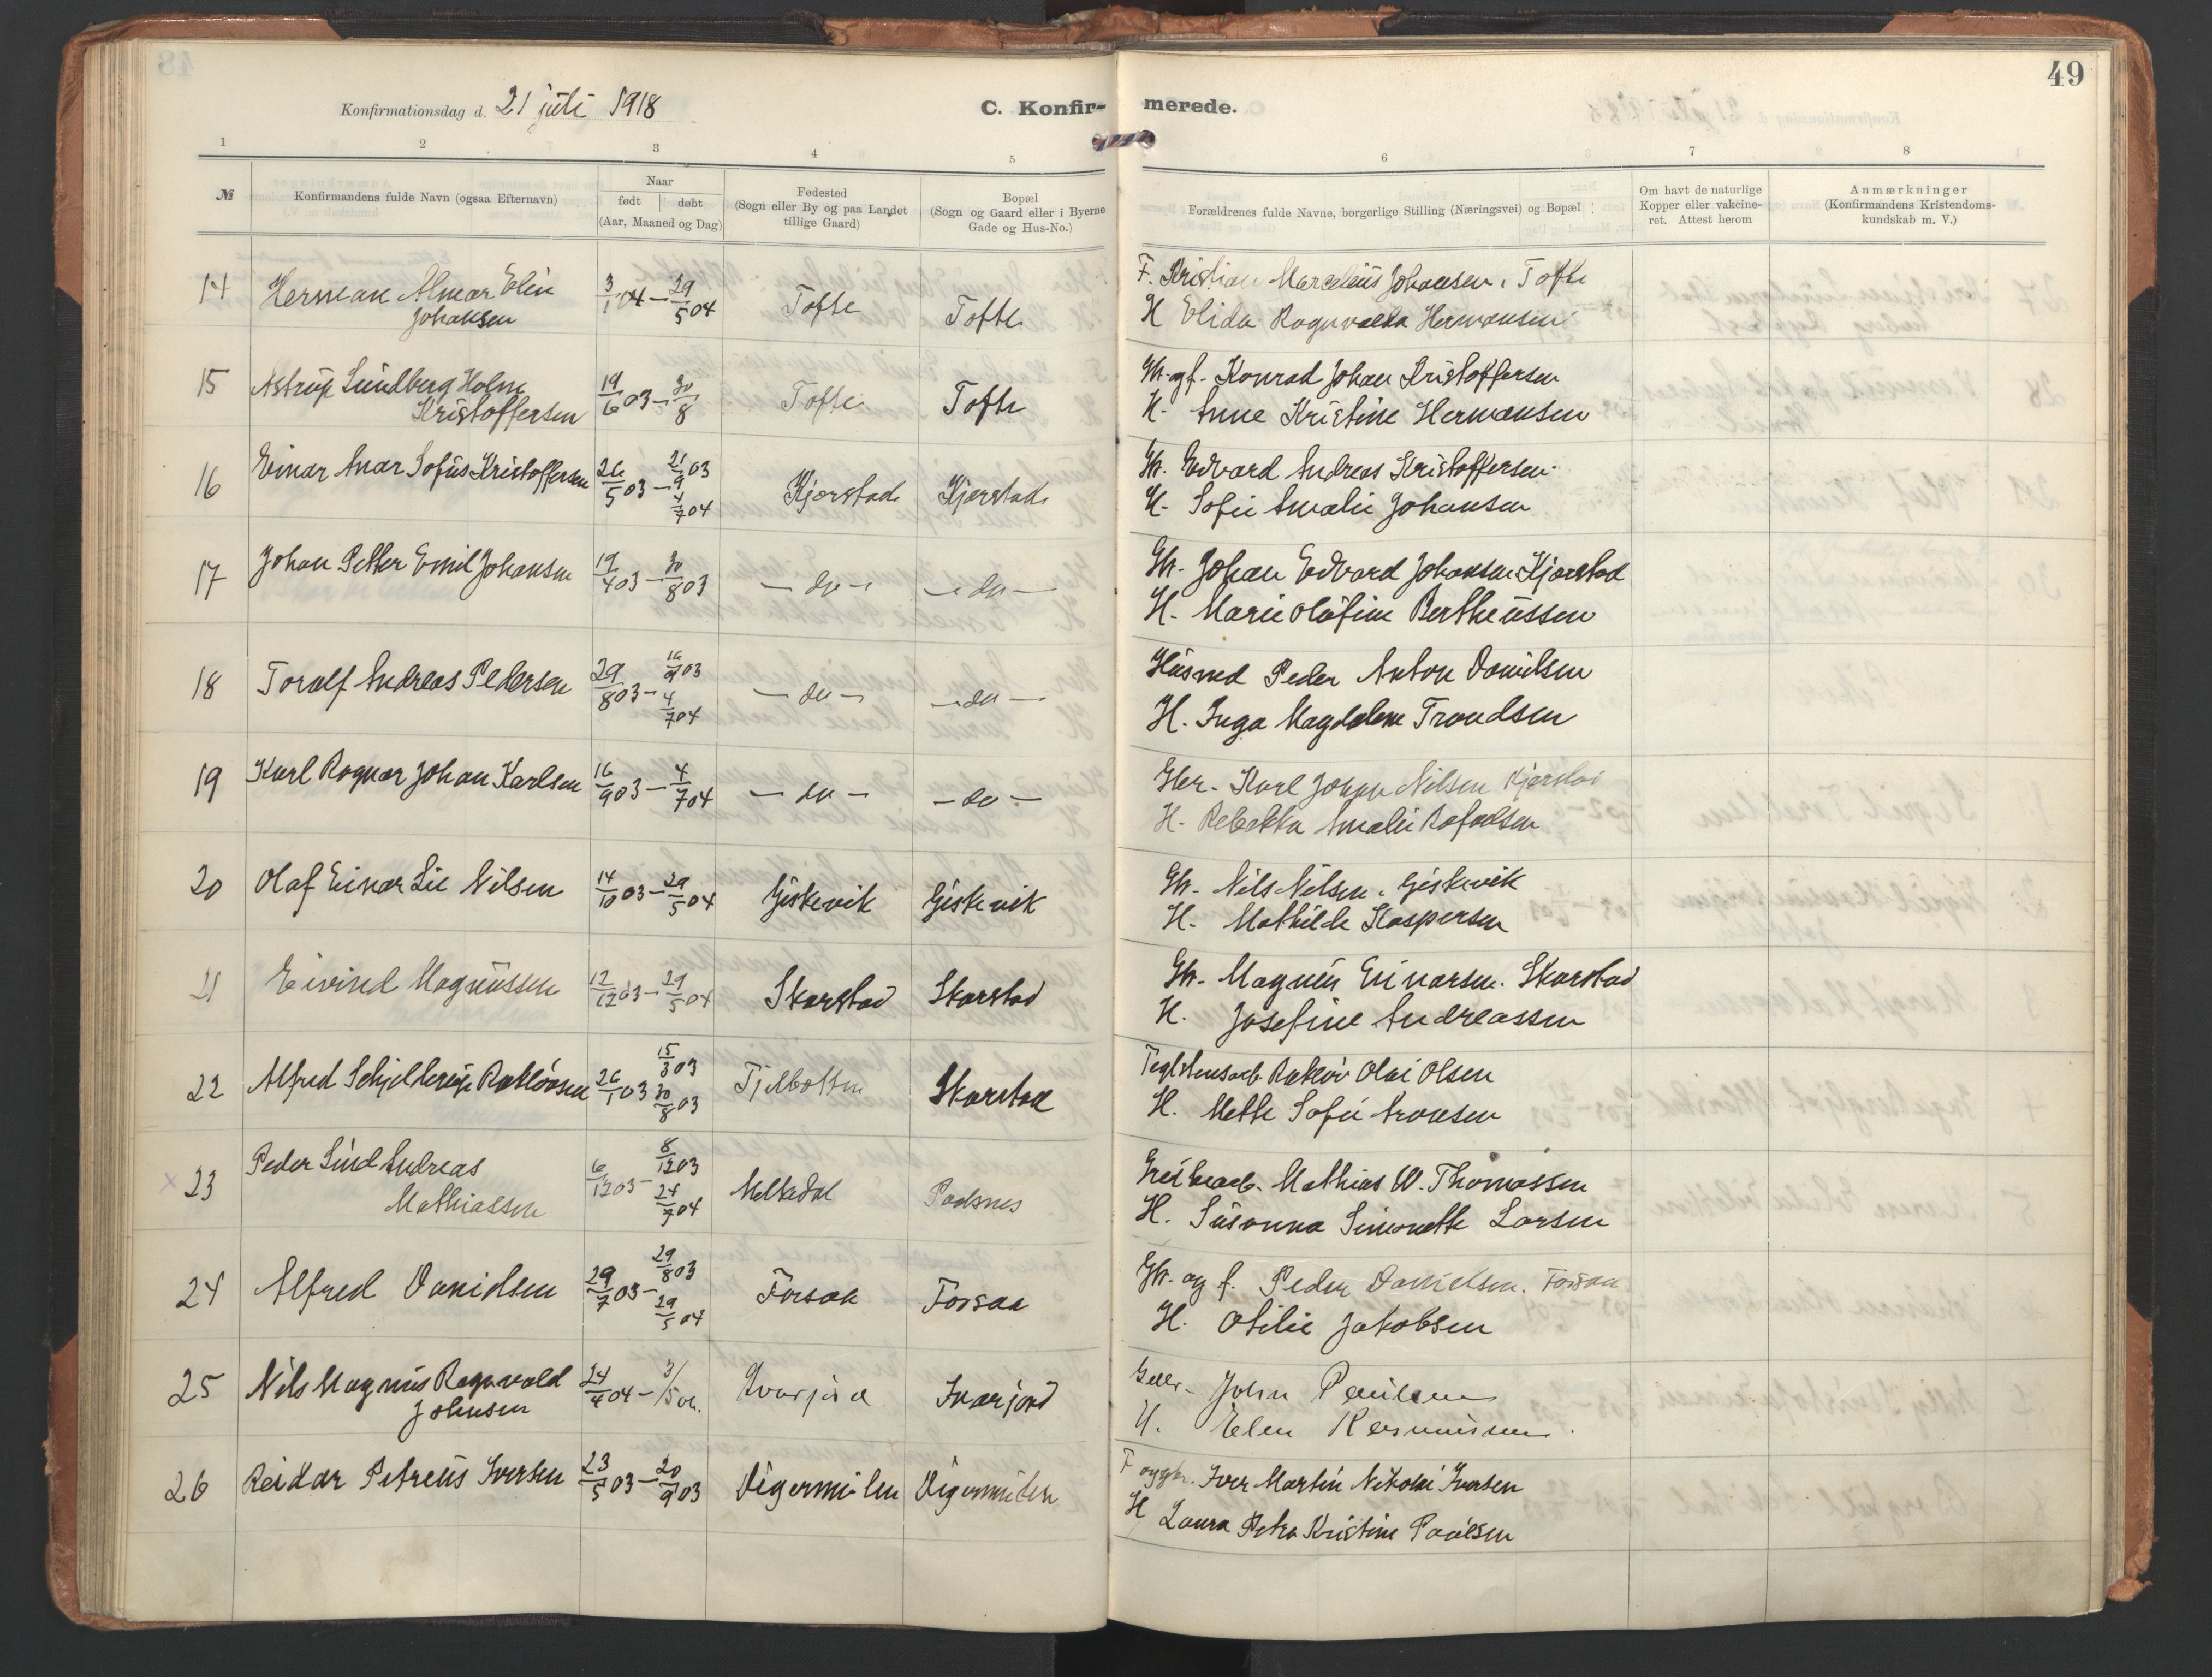 49
Konfirmationsdag d. 21 juli 1918
C. Konfir-
merede.
1 2 3 4 5 6 7 8
№
Konfirmandens fulde Navn (ogsaa Efternavn)
Naar
født døbt
(Aar, Maaned og Dag)
Fødested
(Sogn eller By og paa Landet
tillige Gaard)
Bopæl
(Sogn og Gaard eller i Byerne
Gade og Hus-No.)
Forældrenes fulde Navne, borgerlige Stilling (Næringsvei) og Bopæl
Om havt de naturlige
Kopper eller vakcine-
ret. Attest herom
Anmærkninger
(Konfirmandens Kristendoms-
kundskab m. V.)
14 Herman Almar Elin 3/1 04 – 29/5 04 Tofte Tofte F. Kristian Marcelius Johansen. Tofte
Johansen H Elida Ragnvalda Hermansen
15 Astrup Lundberg Holm 19/6 03 – 30/8 Tofte Tofte Gb. og f. Konrad Johan Kristoffersen
Kristoffersen H. Anne Kristine Hermansen
16 Einar Anar Sofus Kristoffersen 26/5 03 – 21/9 03 4/7 04 Kjerstad Kjerstad Gb. Edvard Andreas Kristoffersen
H. Sofie Amalie Johansen
17 Johan Petter Emil Johansen 19/4 03 – 30/8 03 – do – – do – Gb. Johan Edvard Johansen Kjerstad
H. Marie Olufine Bertheussen
18 Toralf Andreas Pedersen 29/8 03 – 16/9 03 4/7 04 – do – – do – Husmd Peder Anton Danielsen
H. Inga Magdalene Trondsen
19 Karl Ragnar Johan Karlsen 16/9 03 – 4/7 04 – do – – do – Gbr. Karl Johan Nilsen Kjerstad
H. Rebekka Amalie Rafaelsen
20 Olaf Einar Lie Nilsen 14/10 03 – 29/5 04 Giskevik Giskevik Gb. Nils Nilsen. Giskevik
H. Mathilde Kaspersen
21 Eivind Magnussen 12/12 03 – 29/5 04 Skarstad Skarstad Gb. Magnus Einarsen. Skarstad
H. Josefine Andreassen
22 Alfred Schjelderup Rakløvsen 26/1 03 15/3 03 30/8 03 Fjelbotten Skarstad Rakløv Olai Olsen
H. Mette Sofie Aronsen
x 23 Peder Lind Andreas 6/12 03 – 8/12 03 24/7 04 Melkedal Mathias W. Thomassen
Mathiassen H. Susanna Simonette Larsen
24 Alfred Danielsen 29/7 03 – 29/8 03 29/5 04 Forsaa Forsaa Gb. og f. Peder Danielsen. Forsaa
H. Otilie Jakobsen
25 Nils Magnus Ragnvald 24/4 04 – Ivarjord Ivarjord John Paulsen
Johnsen H. Elen Rasmussen.
26 Reidar Petreus Iversen 23/5 03 – 20/9 03 Digermulen Digermulen F og gbr. Iver Martin Nikolai Iversen
H Laura Petra Kristine Paulsen